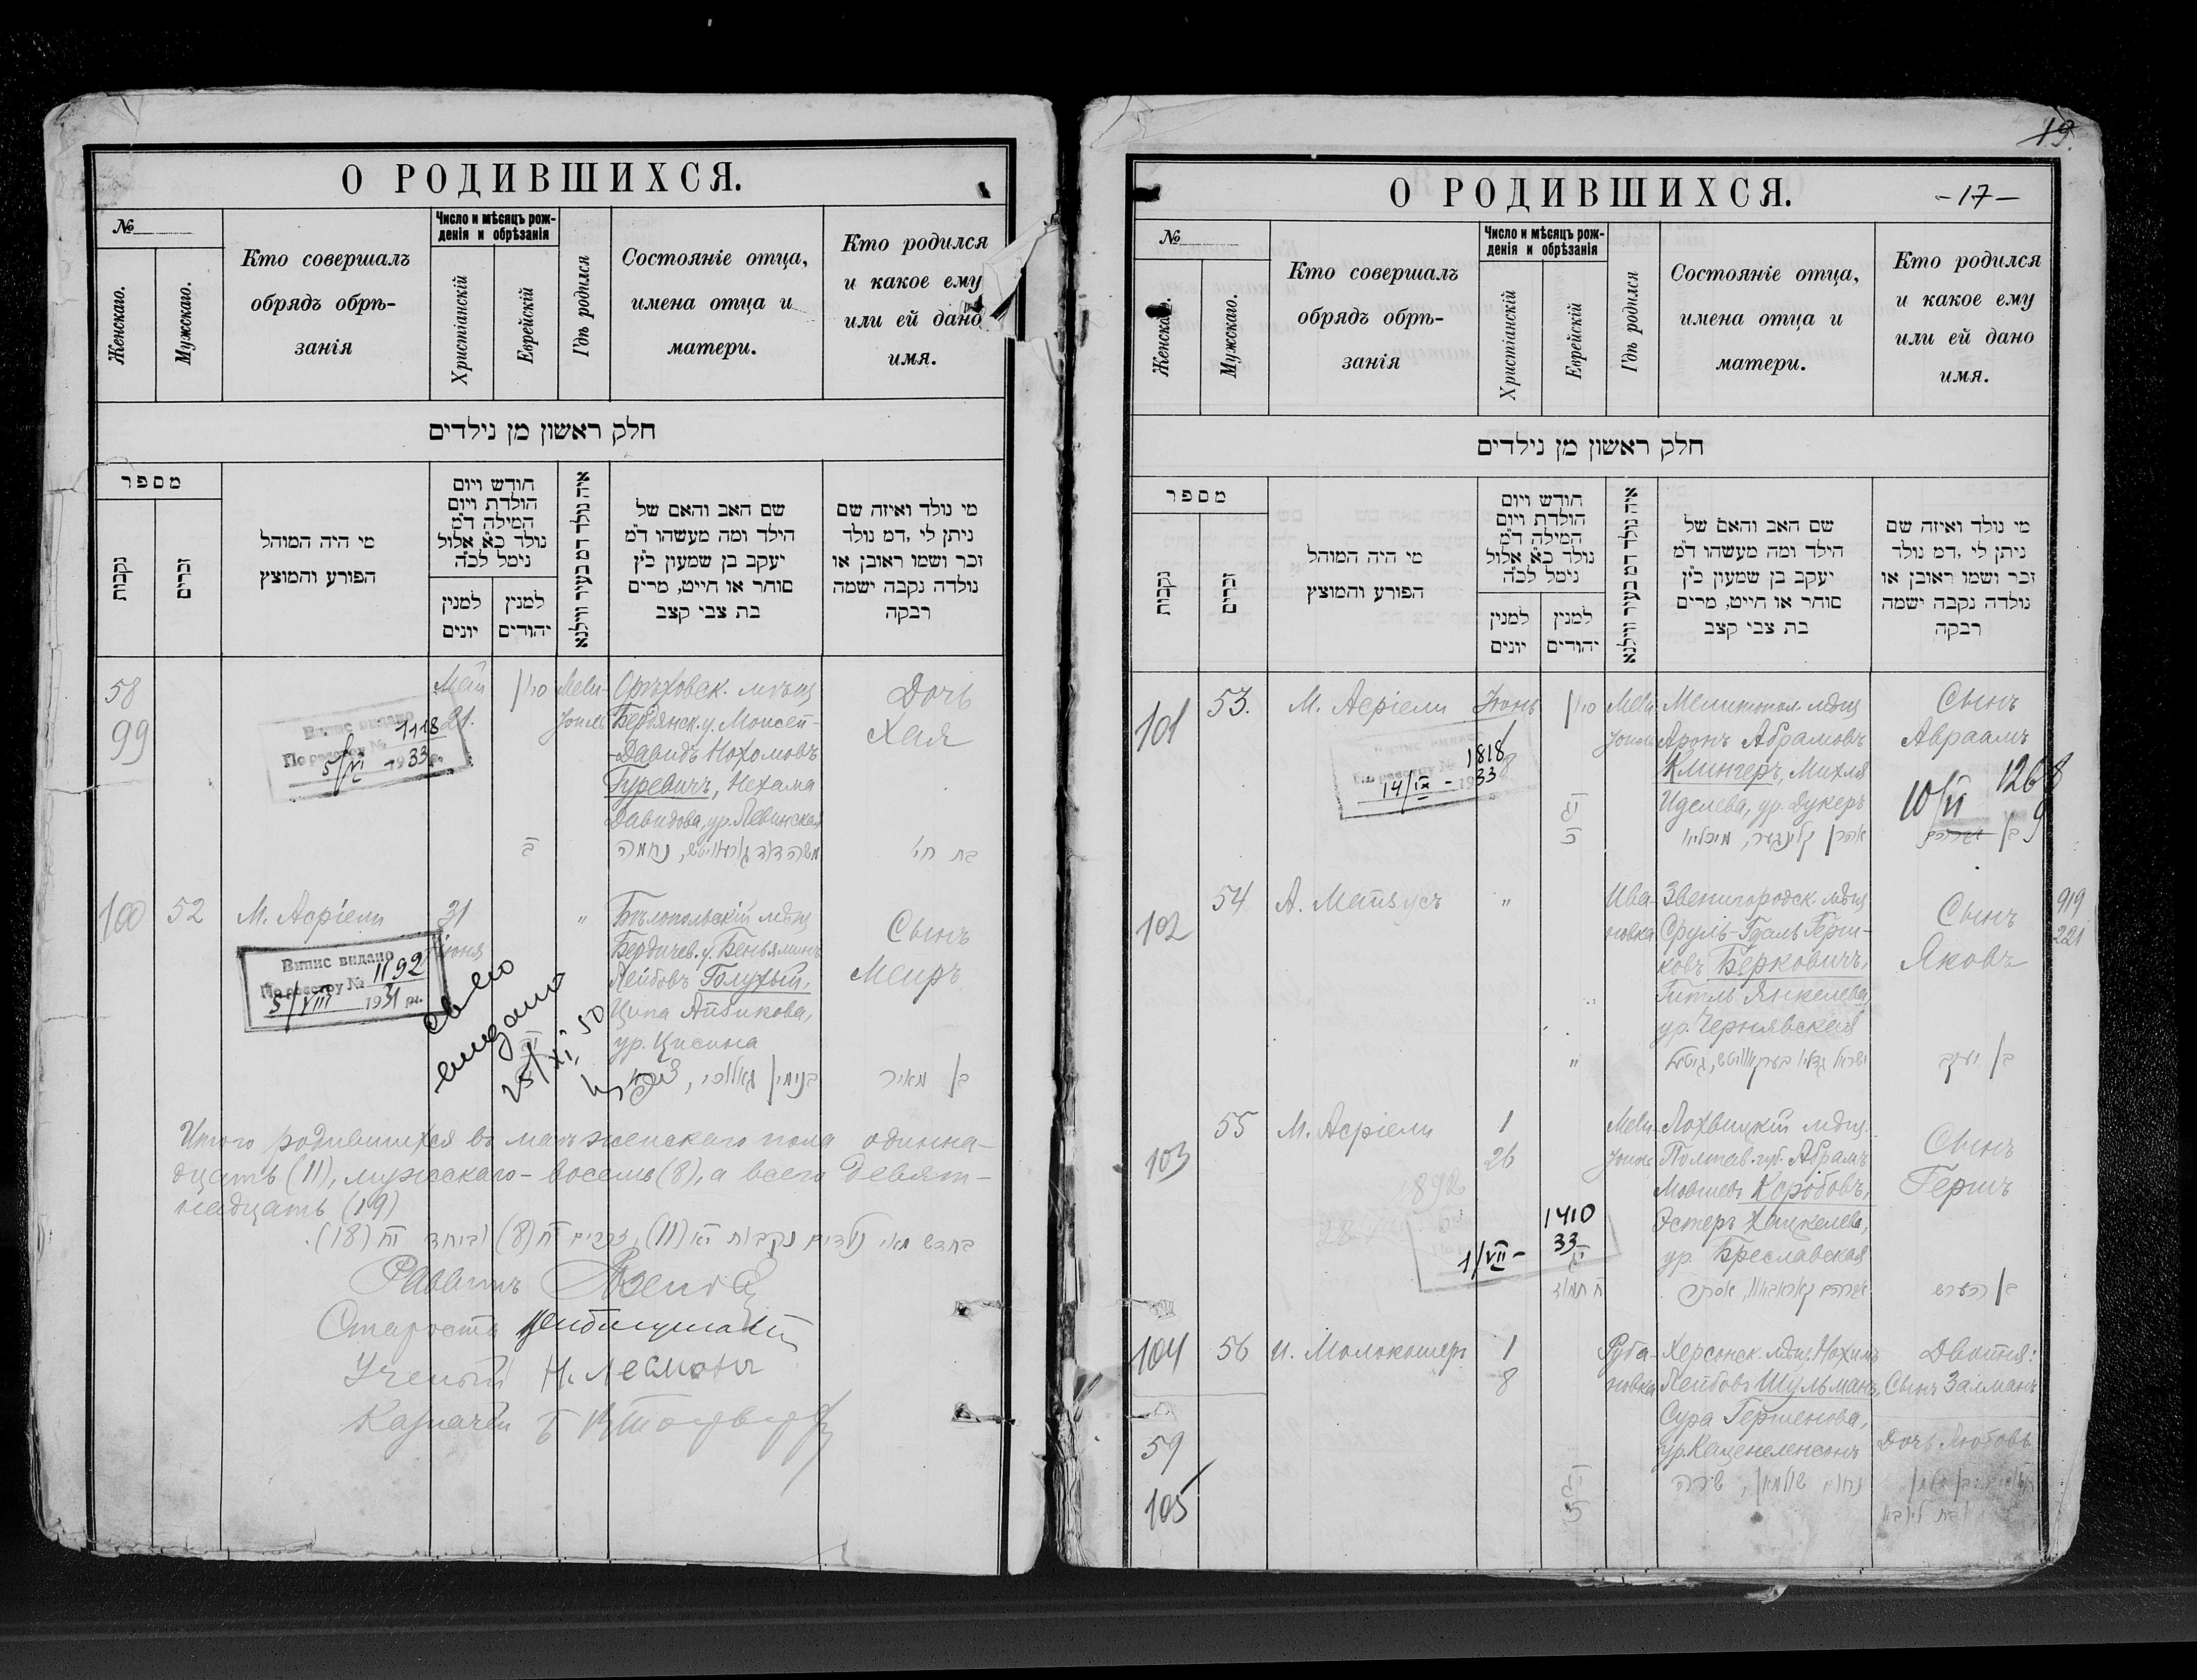 О РОДИВШИХСЯ.
№
Женскаго.
Мужскаго.
Кто совершалъ
обрядъ обрѣ-
занія
Число и мѣсяцъ рож-
денія и обрѣзанія
Христіанскій
Еврейскій
Гдѣ родился
Состояніе отца,
имена отца и
матери.
Кто родился
и какое ему
или ей дано
имя.
חלק ראשון מן נילדים
מספר
נקבות
זכרים
מי היה המוהל
הפורע והמוצץ
חודש ויום
הולדת ויום
המילה ד״מ
נולד כ״א אלול
נימל לכ״ה
למנין
יונים
למנין
יהודים
איה נולד דמ בעיר ווילנא
שם האב והאם של
הילד ומה מעשהו ד״מ
יעקב בן שמעון כ״ץ
סוחר או חייט, מרים
בת צבי קצב
מי נולד ואיזה שם
ניתן לי ,דמ נולד
זכר ושמו ראובן או
נולדה נקבה ישמה
רבקה
58
99
Май
21.
סיון
Мели-
тополь
Орѣховск. мѣщ
Бердянск. у. Моисей-
-Давидъ Нохомовъ
Гуревичъ, Нехама
Давидова, ур. Левинская
Дочь
Хая
בת חי׳
Випис видано
По реєстру № 1118
5/VI - 1933 р.
100
52
М. Асріели
31
іюня
"
Бѣлопольскій мѣщ
Бердичев. у. Беньяминъ
Лейбовъ Голухый,
Ципа Айзикова,
ур. Цисина
Сынъ
Меиръ
בן מאיר
Випис видано
По реєстру № 1192
5/VIII 1931 р.
св-во
выдано
25/XI 50
Итого родившихся въ маѣ женскаго пола одинна-
дцать (11), мужскаго - восемь (8), а всего девят-
надцать (19)
בחדש מאי נולדים נקבות יא (11), זכרים ח (8) וביחד יח (18).
Раввинъ
Староста
Ученый Н. Лейман
Казначей
19.
О РОДИВШИХСЯ.
-17-
№
Женскаго.
Мужскаго.
Кто совершалъ
обрядъ обрѣ-
занія
Число и мѣсяцъ рож-
денія и обрѣзанія
Христіанскій
Еврейскій
Гдѣ родился
Состояніе отца,
имена отца и
матери.
Кто родился
и какое ему
или ей дано
имя.
חלק ראשון מן נילדים
מספר
נקבות
זכרים
מי היה המוהל
הפורע והמוצץ
חודש ויום
הולדת ויום
המילה ד״מ
נולד כ״א אלול
נימל לכ״ה
למנין
יונים
למנין
יהודים
איה נולד דמ בעיר ווילנא
שם האב והאם של
הילד ומה מעשהו ד״מ
יעקב בן שמעון כ״ץ
סוחר או חייט, מרים
בת צבי קצב
מי נולד ואיזה שם
ניתן לי ,דמ נולד
זכר ושמו ראובן או
נולדה נקבה ישמה
רבקה
101
53.
М. Асріели
Іюнь
1
8
סיון
Мели-
тополь
Мелитопол. мѣщ
Аронъ Абрамовъ
Клингеръ, Михля
Иделева, ур. Дукеръ
Сынъ
Авраамъ
10/VI 1268
בן אברהם
1818
14/IX - 1933
102
54
А. Майзусъ
"
Ива-
новка
Звенигородск. мѣщ
Сруль-Гдаль Герш-
ковъ Берковичъ,
Гитль Янкелева,
ур. Чернявская
Сынъ
Яковъ
919
221
בן יעקב
103
55
М. Асріели
1
26
Мели-
тополь
Лохвицкій мѣщ.
Полтав. губ. Абрамъ
Мовшевъ Коробовъ,
Эстеръ Хацкелева,
ур. Бреславская
Сынъ
Гершъ
1892
1410
1/VII - 33
ח תמוז
בן הערש
104
56
И. Молокошеръ
1
8
Руба-
новка
Херсонск. мѣщ. Нохимъ
Лейбовъ Шульманъ,
Сура Гершенова,
ур. Каценеленсонъ
Двойня:
Сынъ Залманъ
Дочь Любовь
59
105
נחום שולמאן, שרה